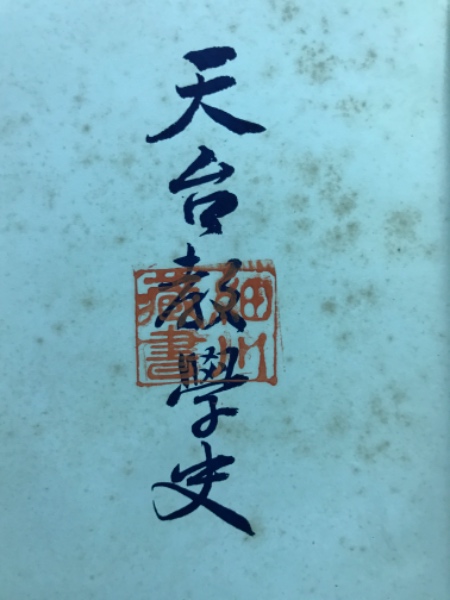 天台教學史
細川
藏書